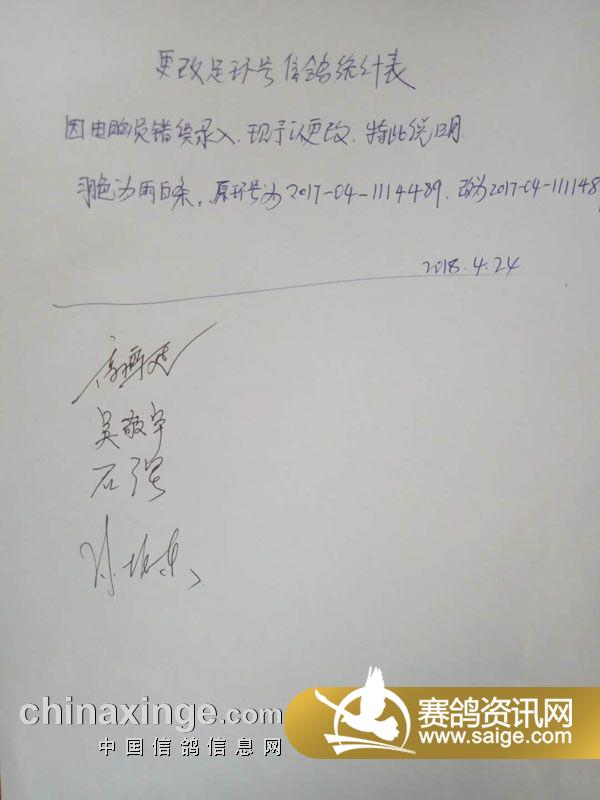 更改足环号信鸽统计表
因电脑员错误录入,现予以更改,特此说明
羽色为雨白条,原环号为2017-04-1114489,改为2017-04-111148
2018.4.24
吴敬宇
石强
chinaxinge.com
中国信鸽信息网
赛鸽资讯网
www.saige.com